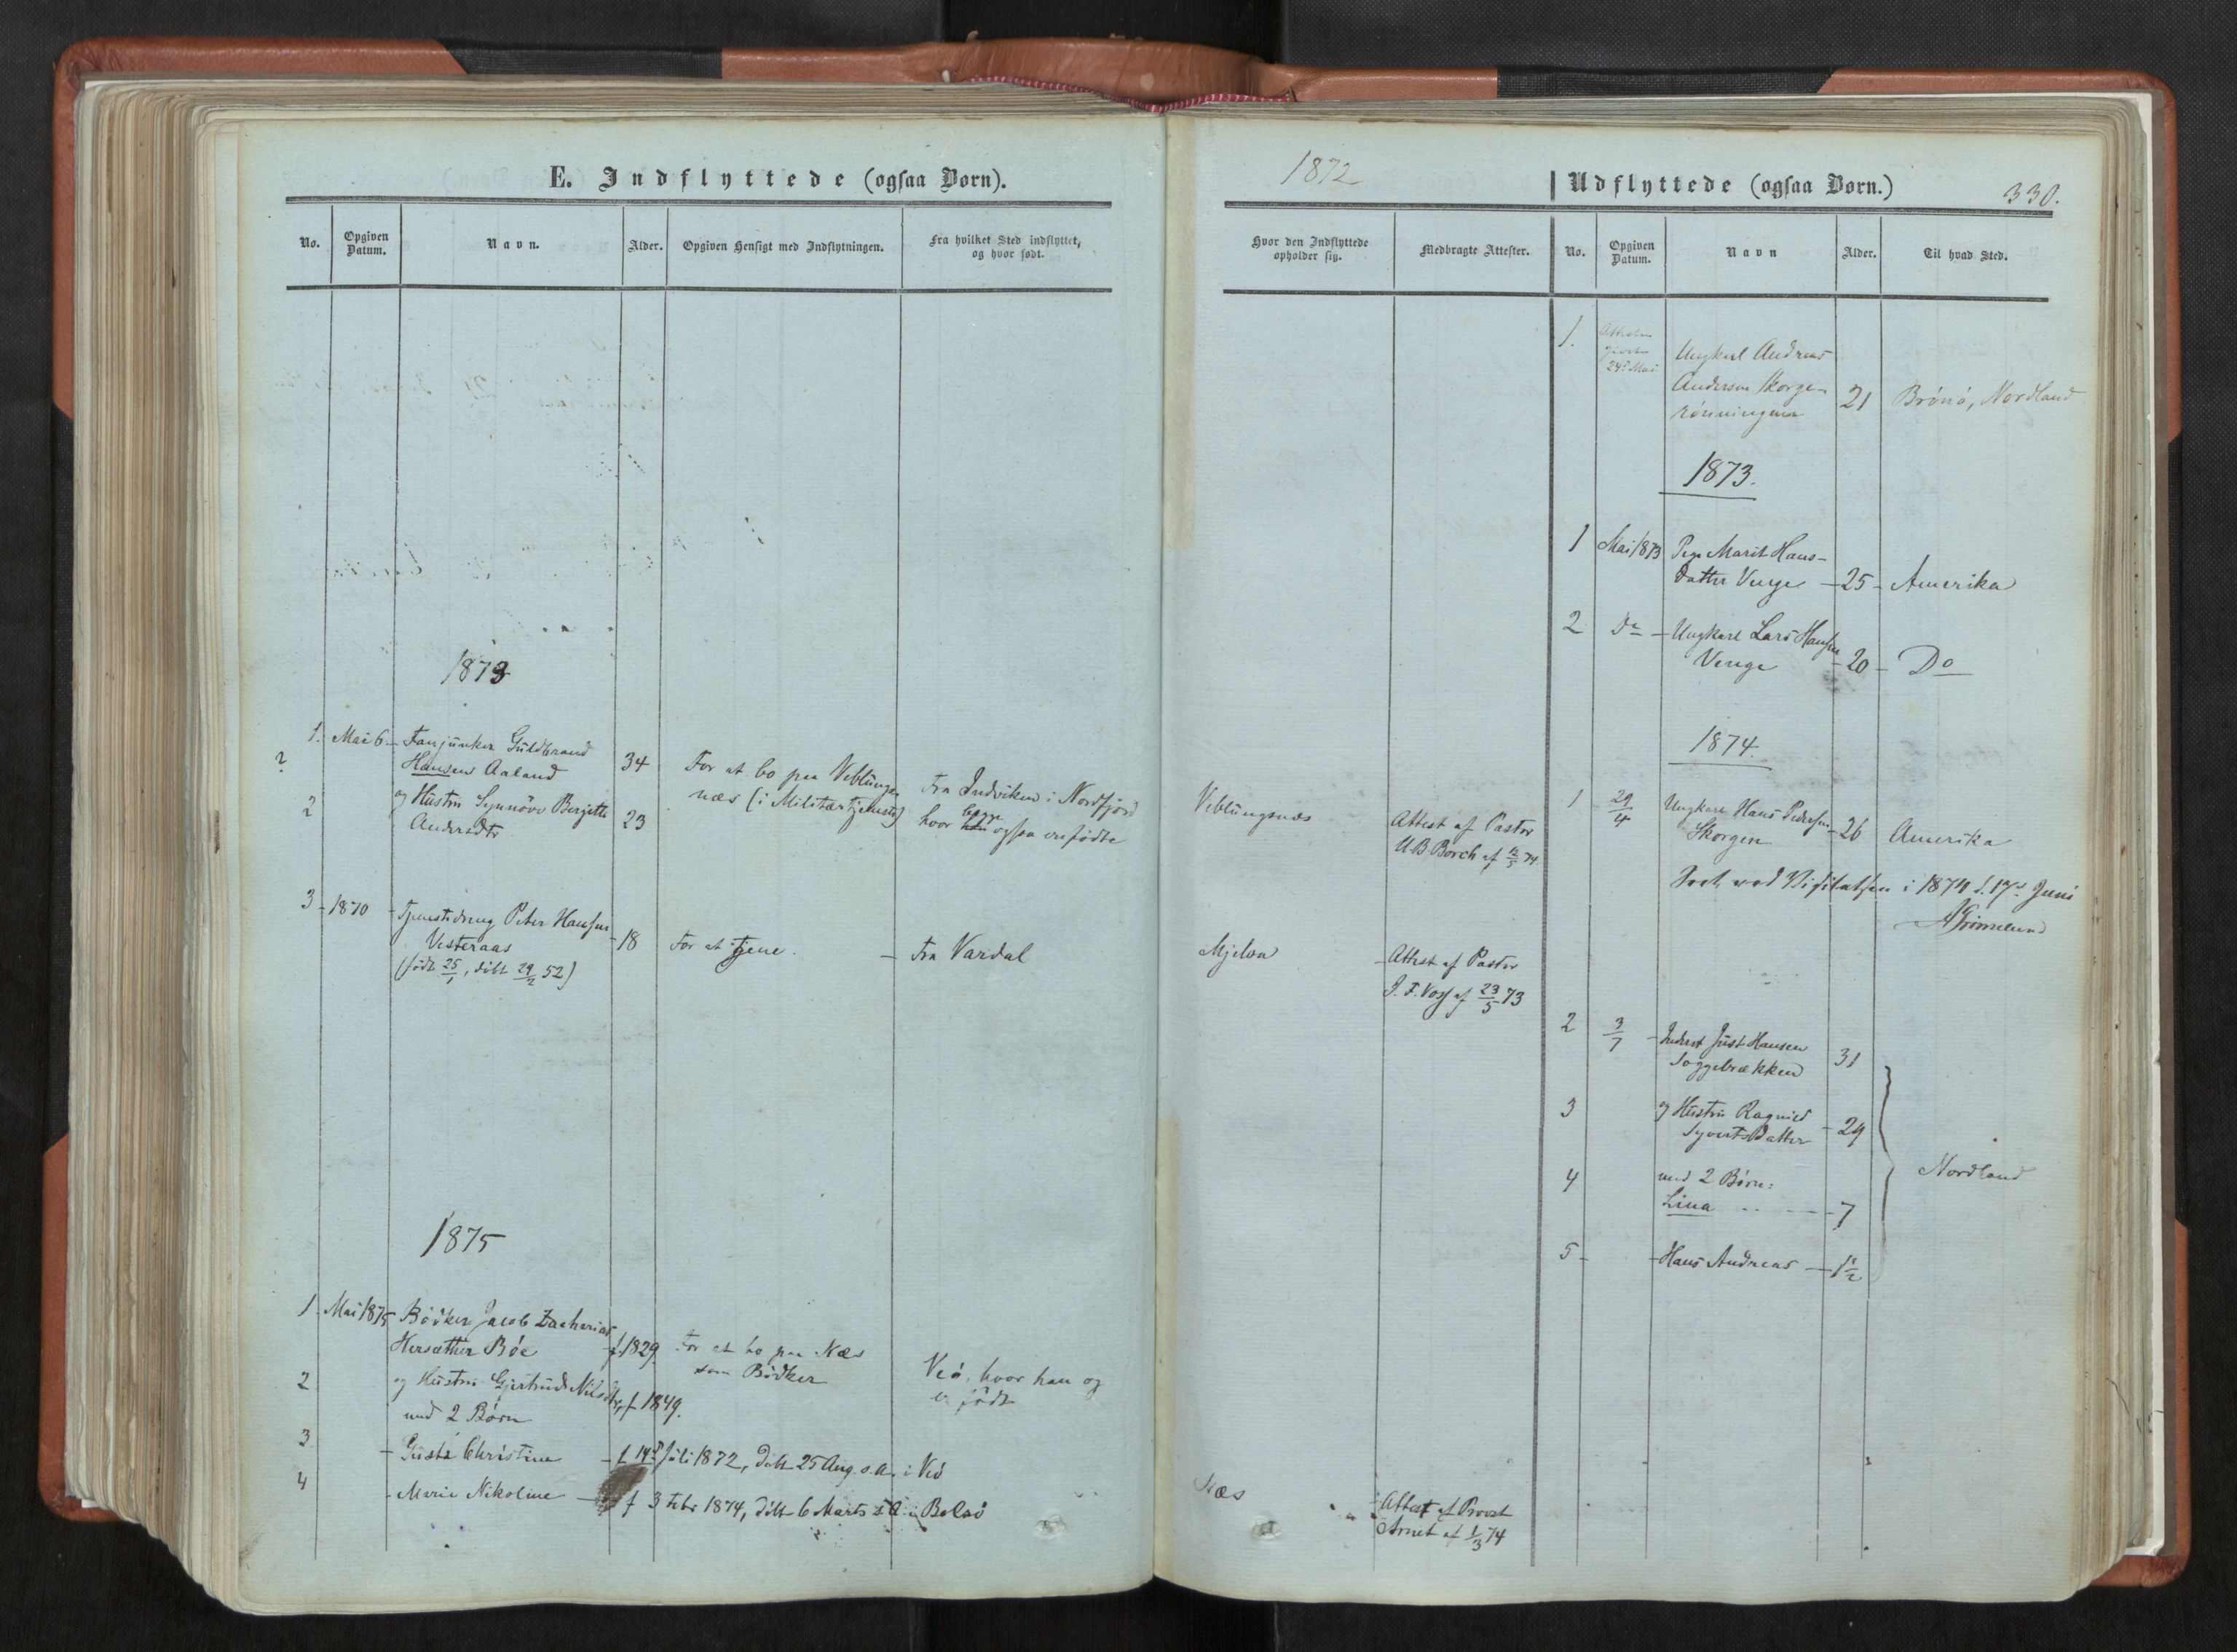 E. Indflyttede (ogsaa Børn).
No.
Opgiven
Datum.
Navn.
Alder.
Opgiven Hensigt med Indflytningen.
Fra hvilket Sted indflyttet,
og hvor født.
1873
1. Mai 6 - Fanjunker Guldbrand
Hansen Aaland
34
2
og Hustru Synnöve Bergitte
Andersdtr
23
For at bo paa Veblungs
næs (i Militærtjeneste)
Fra Indviken i Nordfjord
begge
hvor han ogsaa ere fødte
3 - 1870 - Tjenestedreng Peter Hansen
Vesteraas
(født 25/1, døbt 29/2 52)
- 18
For at tjene. -
Fra Vardal
1875
1 Mai 1875 Bødker Jacob Zacharias
Hersæther Bøe
f. 1829
2
og Hustru Gjertrud Nilsdtr, f 1849.
med 2 Børn
For at bo paa Næs
som Bødker
Veø, hvor han og
er født
3
- Gusta Christine - f 14d Juli 1872, døbt 25 Aug. s.A. i Veø
4
- Marie Nikoline - f 3 Febr 1874, døbt 6 Marts s A i Bolsø
1872
Udflyttede (ogsaa Børn.)
330.
Hvor den Indflyttede
opholder sig.
Medbragte Attester.
No.
Opgiven
Datum.
Navn
Alder.
Til hvad Sted.
1.
24de Mai
Ungkarl Andreas
Andersen Skorge-
rønningen
21
Brønø, Nordland
1873.
1 Mai 1873 Pige Marit Hans-
datter Venge - 25 - Amerika
2 Do - Ungkarl Lars Hansen
Venge - 20 - Do
1874.
1 29/4 Ungkarl Hans Pedersen
Skorgen
- 26 Amerika
Veblungsnæs
Attest af Pastor
U.B. Borch af 12/5 74
Seet ved Visitatsen i 1874 d. 17de Juni
AGrimelund
Mjelva
- Attest af Pastor
J. F. Voss af 23/5 73
2 3/7 - Inderst Just Hansen
Soggebrækken
31
3
og Hustru Ragnild
Syvertsdatter
- 29
4
med 2 Børn:
Lina - 7
Nordland
5 - - Hans Andreas - 1 1/2
Næs
- Attest af Provst
Arnet af 1/3 74